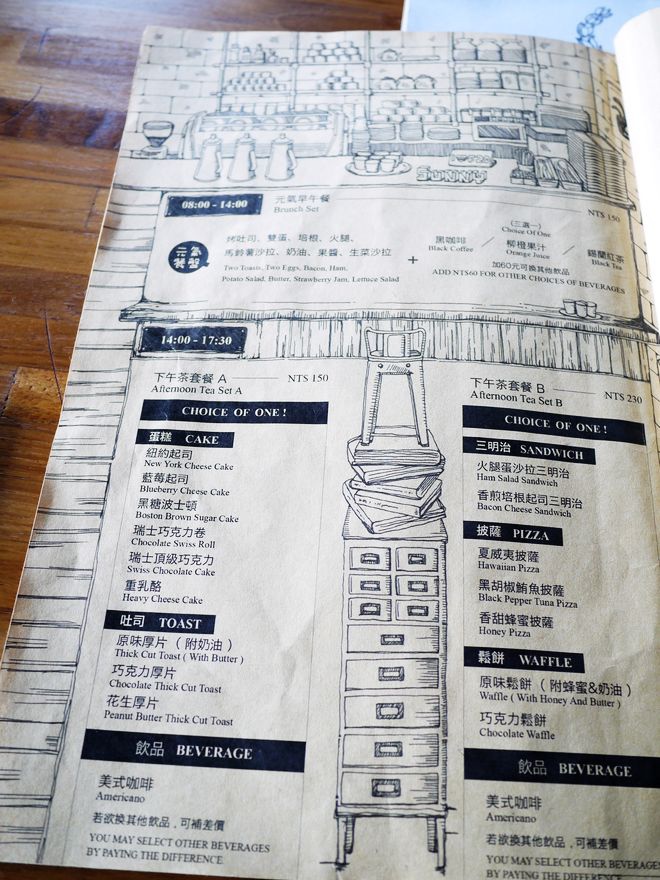 SUNNY
08:00 - 14:00
元氣早午餐
Brunch Set
NT$ 150
元氣
餐盤
烤吐司、雙蛋、培根、火腿、
馬鈴薯沙拉、奶油、果醬、生菜沙拉
Two Toasts, Two Eggs, Bacon, Ham,
Potato Salad, Butter, Strawberry Jam, Lettuce Salad
+
(三選一)
Choice Of One
黑咖啡 / 柳橙果汁 / 錫蘭紅茶
Black Coffee Orange Juice Black Tea
加60元可換其他飲品
ADD NT$60 FOR OTHER CHOICES OF BEVERAGES
14:00 - 17:30
下午茶套餐 A NT$ 150
Afternoon Tea Set A
CHOICE OF ONE !
蛋糕 CAKE
紐約起司
New York Cheese Cake
藍莓起司
Blueberry Cheese Cake
黑糖波士頓
Boston Brown Sugar Cake
瑞士巧克力卷
Chocolate Swiss Roll
瑞士頂級巧克力
Swiss Chocolate Cake
重乳酪
Heavy Cheese Cake
吐司 TOAST
原味厚片 ( 附奶油 )
Thick Cut Toast ( With Butter )
巧克力厚片
Chocolate Thick Cut Toast
花生厚片
Peanut Butter Thick Cut Toast
飲品 BEVERAGE
美式咖啡
Americano
若欲換其他飲品 , 可補差價
YOU MAY SELECT OTHER BEVERAGES
BY PAYING THE DIFFERENCE
下午茶套餐 B NT$ 230
Afternoon Tea Set B
CHOICE OF ONE !
三明治 SANDWICH
火腿蛋沙拉三明治
Ham Salad Sandwich
香煎培根起司三明治
Bacon Cheese Sandwich
披薩 PIZZA
夏威夷披薩
Hawaiian Pizza
黑胡椒鮪魚披薩
Black Pepper Tuna Pizza
香甜蜂蜜披薩
Honey Pizza
鬆餅 WAFFLE
原味鬆餅 ( 附蜂蜜&奶油 )
Waffle ( With Honey And Butter )
巧克力鬆餅
Chocolate Waffle
飲品 BEVERAGE
美式咖啡
Americano
若欲換其他飲品 , 可補差價
YOU MAY SELECT OTHER BEVERAGES
BY PAYING THE DIFFERENCE